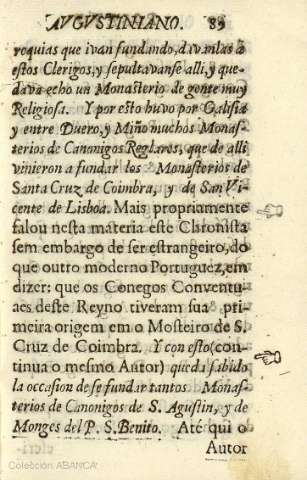 AVGVSTINIANO. 89
roquias que ivan fundando, d
estos Clerigos, y sepultavanse alli, y que-
dava gecho un Monasterio de gente muy
Religiosa. Y por esto huvo por Galisia
y entre Duero, y Miño muchos Monas-
terios de Canonigos Reglares, que de alli
vinieron a fundar los Monasterios de
Santa Cruz de Coimbra, y de San Vi-
cente de Lisboa. Mais propriamente
falou nesta materia este Chronista
sem embargo de ser estrangeiro, do
que outro moderno Portuguez, em
dizer: que os Conegos Conventu-
aes deste Reyno tiveram sua pri-
meira origem em o Mosteiro de S.
Cruz de Coimbra. Y con esto (con-
tinua o mesmo Autor) queda sabido
la occasion de se fundar tantos Monas-
terios de Canonigos de S. Agustin, y de
Monges del P. S. Benito. Até qui o
Autor
Colección ABANCA